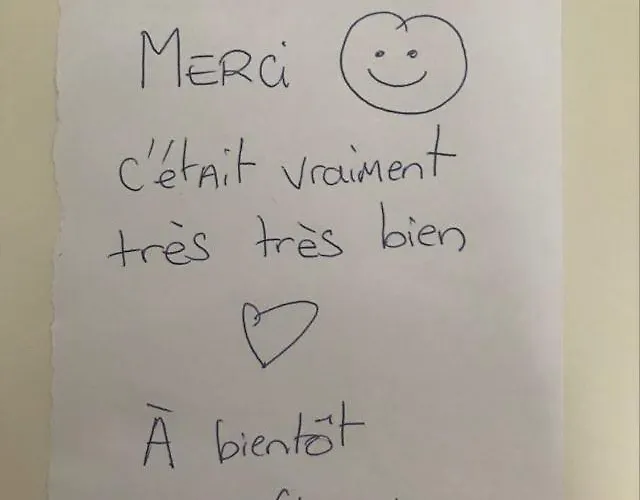 MERCi
c'était vraiment
très très bien
À bientôt